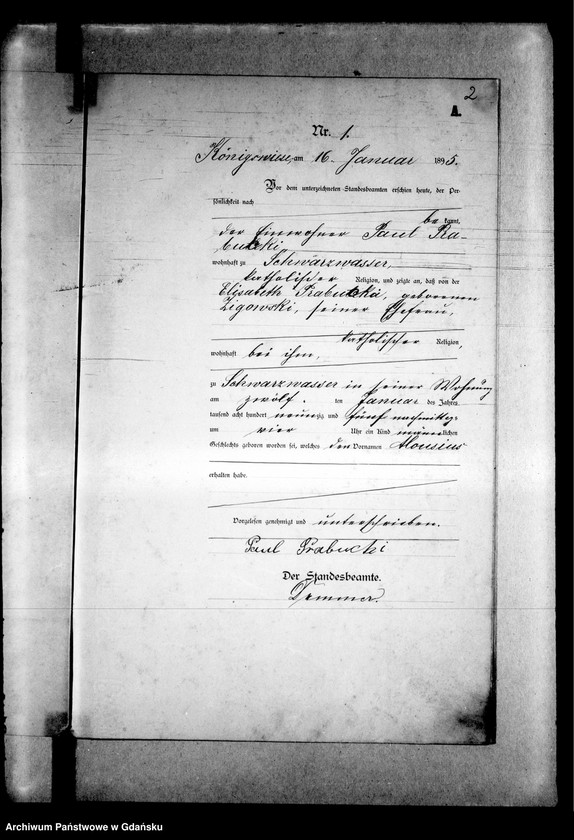 2
A.
Nr. 1.
Königswiese am 16 Januar 1895.
Vor dem unterzeichneten Standesbeamten erschien heute, der Per-
sönlichkeit nach
be kannt,
der Einwohner Paul Pra-
butzki,
wohnhaft zu Schwarzwasser,
katholischer Religion, und zeigte an, daß von der
Elisabeth Prabutzki, geborenen
Zigowski, seiner Ehefrau,
katholischer Religion,
wohnhaft bei ihm,
zu Schwarzwasser in seiner Wohnung
am zwölf ten Januar des Jahres
tausend acht hundert neunzig und fünf nachmittags
um vier Uhr ein Kind männlichen
Geschlechts geboren worden sei, welches den Vornamen Aloysius
erhalten habe.
Vorgelesen genehmigt und unterschrieben.
Paul Prabucki
Der Standesbeamte.
Archiwum Państwowe w Gdańsku